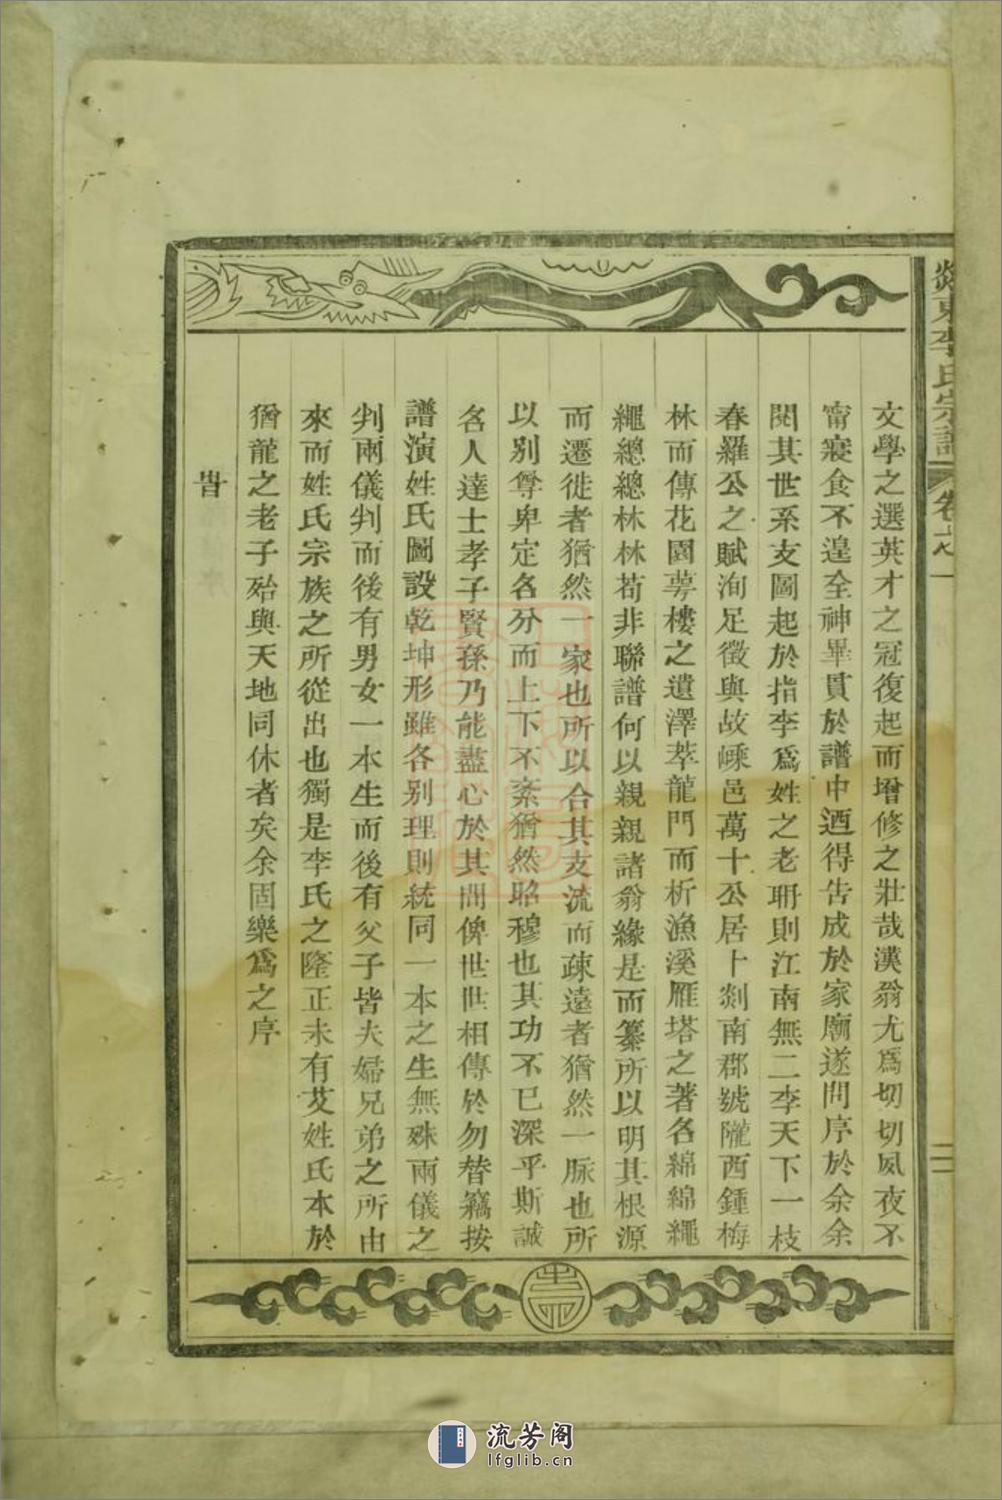 剡東李氏宗譜
卷之一
二
文學之選英才之冠復起而增修之壯哉漢翁尤爲切切夙夜不
甯寢食不遑全神畢貫於譜中迺得告成於家廟遂問序於余余
閱其世系支圖起於指李爲姓之老聃則江南無二李天下一枝
春羅公之賦洵足徵與故嵊邑萬十公居卜剡南郡號隴西鍾梅
林而傳花園萼樓之遺澤萃龍門而析漁溪雁塔之著名綿綿繩
繩總總林林苟非聯譜何以親親諸翁緣是而纂所以明其根源
而遷徙者猶然一家也所以合其支流而疎遠者猶然一脉也所
以别尊卑定各分而上下不紊猶然昭穆也其功不已深乎斯誠
各人達士孝子賢孫乃能盡心於其間俾世世相傳於勿替竊按
譜演姓氏圖設乾坤形雖各别理則統同一本之生無殊兩儀之
判兩儀判而後有男女一本生而後有父子皆夫婦兄弟之所由
來而姓氏宗族之所從出也獨是李氏之隆正未有艾姓氏本於
猶龍之老子殆與天地同休者矣余固樂爲之序
旹
流芳阁
lfglib.cn